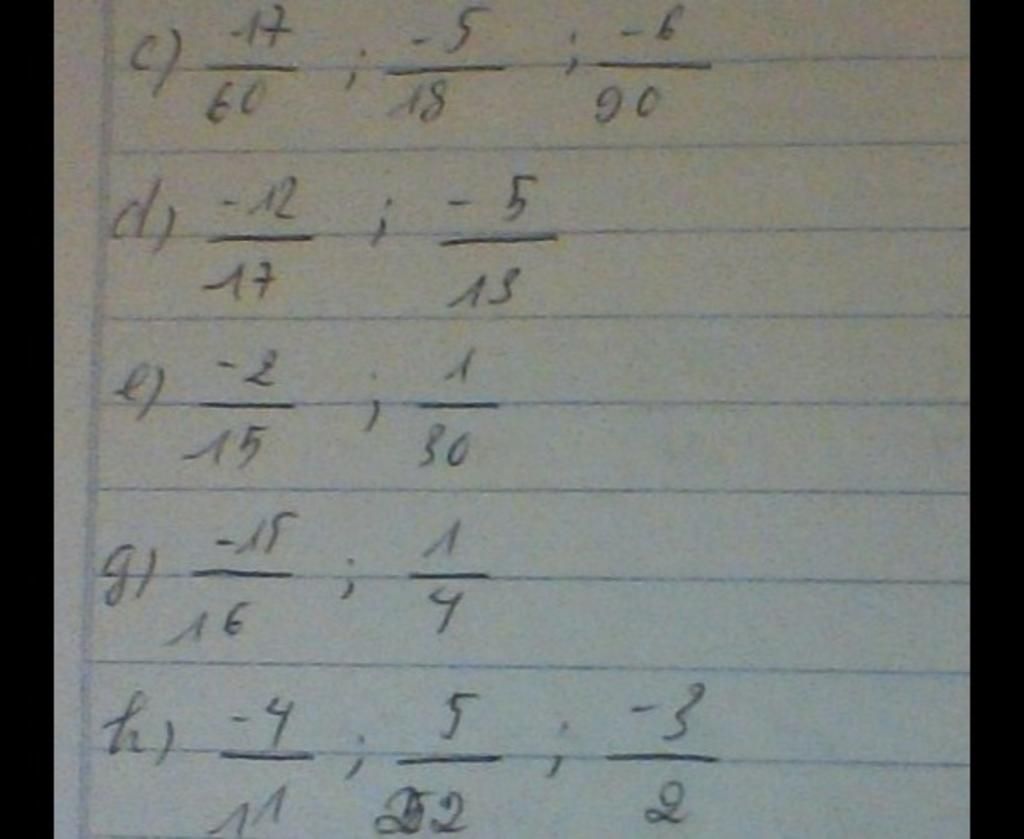 c) -17/60 ; -5/18 ; -6/90
d) -12/17 ; -5/13
e) -2/15 ; 1/30
g) -15/16 ; 1/4
h) -4/11 ; 5/22 ; -3/2